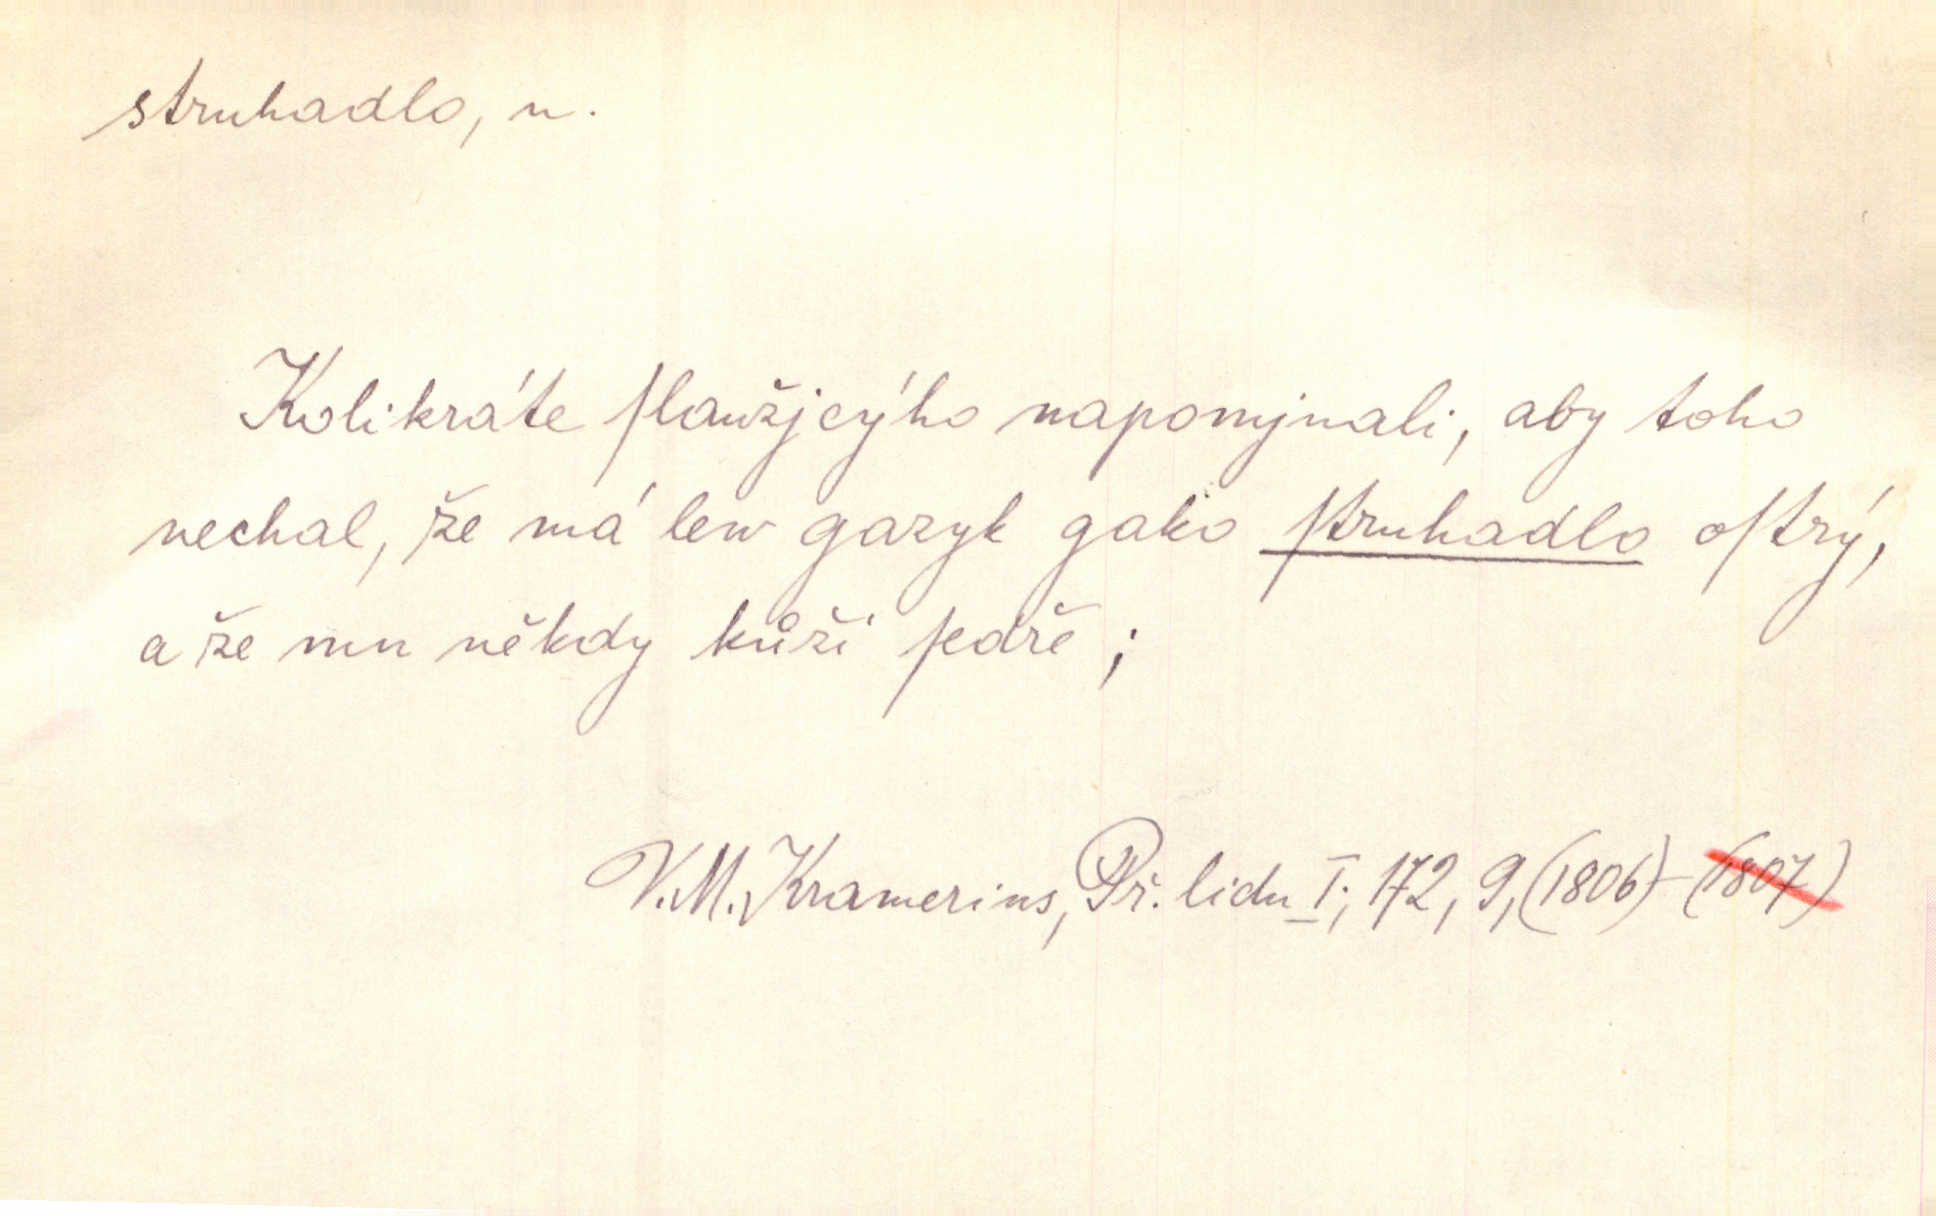 struhadlo, n.
Kolikráte ſlaužjcýho napomjnali, aby toho
nechal, že má lew gazyk gako ſtruhadlo oſtrý,
a že mu někdy kůži ſedře ;
V. M. Kramerius, Př. lidu I; 172, 9, (1806) - (1807)